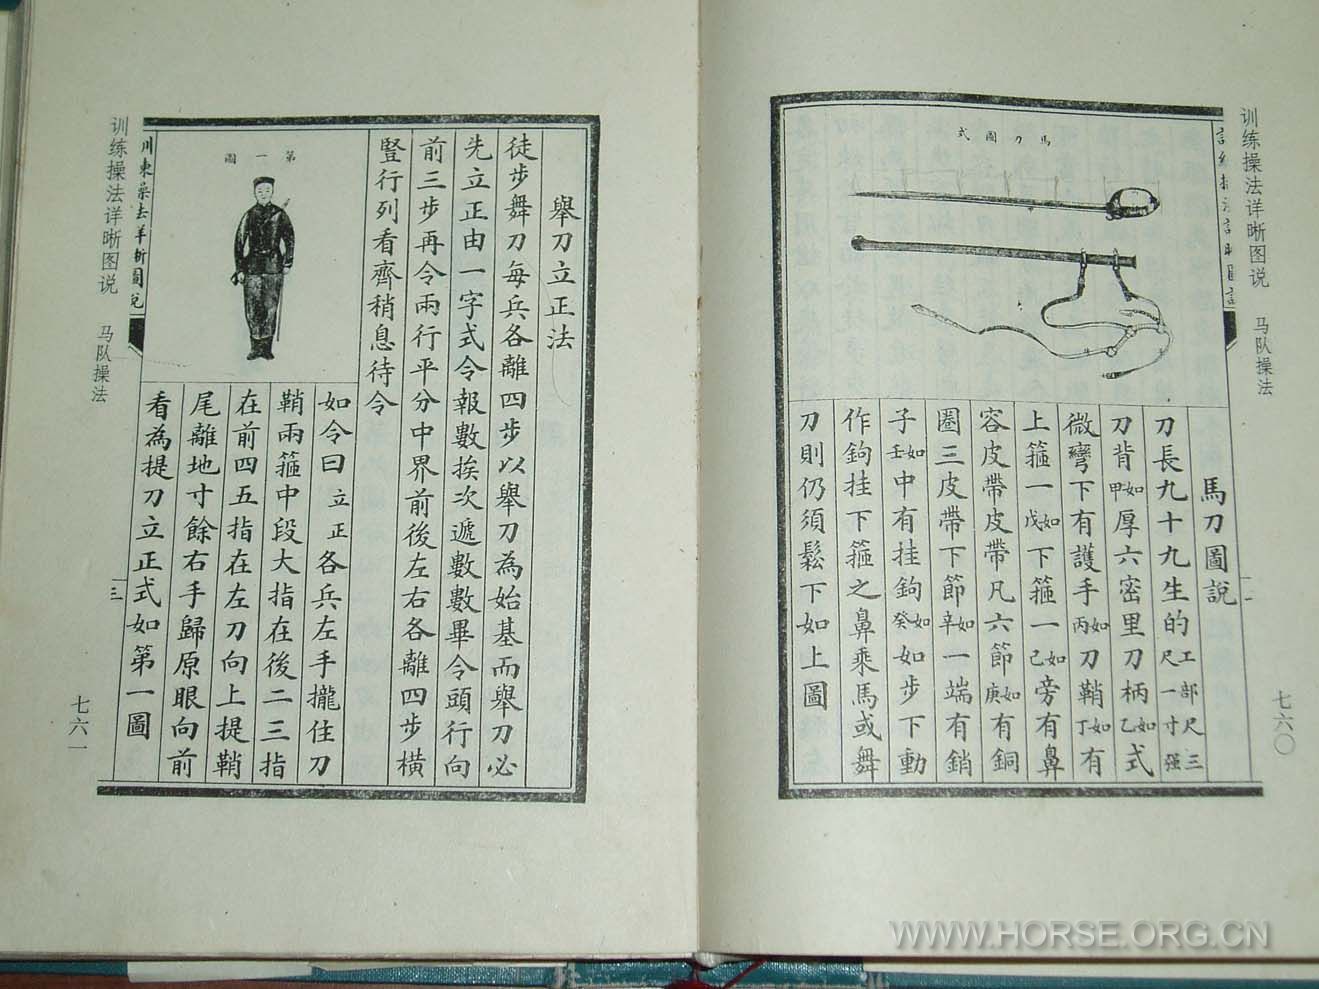 训练操法详晰图说 马队操法
七六〇
馬刀圖式
馬刀圖說
刀長九十九生的工部尺三尺一寸强
刀背如甲厚六密里刀柄如乙式
微彎下有護手如丙刀鞘如丁有
上箍一如戊下箍一如己旁有鼻
容皮帶皮帶凡六節如庚有銅
圈三皮帶下節如辛一端有銷
子如壬中有挂鉤如癸如步下動
作鉤挂下箍之鼻乘馬或舞
刀則仍須鬆下如上圖
舉刀立正法
徒步舞刀每兵各離四步以舉刀為始基而舉刀必
先立正由一字式令報數挨次遞數數畢令頭行向
前三步再令兩行平分中界前後左右各離四步橫
豎行列看齊稍息待令
第一圖
如令曰立正各兵左手攏住刀
鞘兩箍中段大指在後二三指
在前四五指在左刀向上提鞘
尾離地寸餘右手歸原眼向前
看為提刀立正式如第一圖
三
训练操法详晰图说 马队操法
七六一
WWW.HORSE.ORG.CN